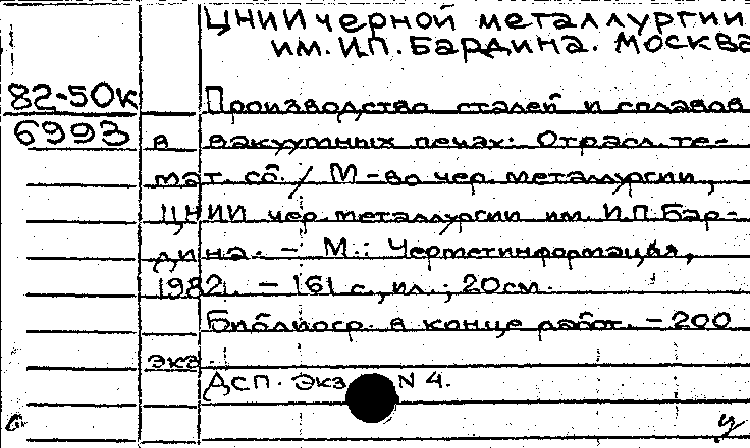 ЦНИИ черной металлургии
им. И.П. Бардина. Москва
82-50к
Производство сталей и сплавов
6993
в вакуумных печах: Отрасл. те-
мат. сб. / М-во чер. металлургии,
ЦНИИ чер. металлургии им. И.П. Бар-
дина. – М.: Черметинформация,
1982. – 161 с., ил.; 20 см.
Библиогр. в конце работ. – 200
экз.
ДСП. Экз. N 4.